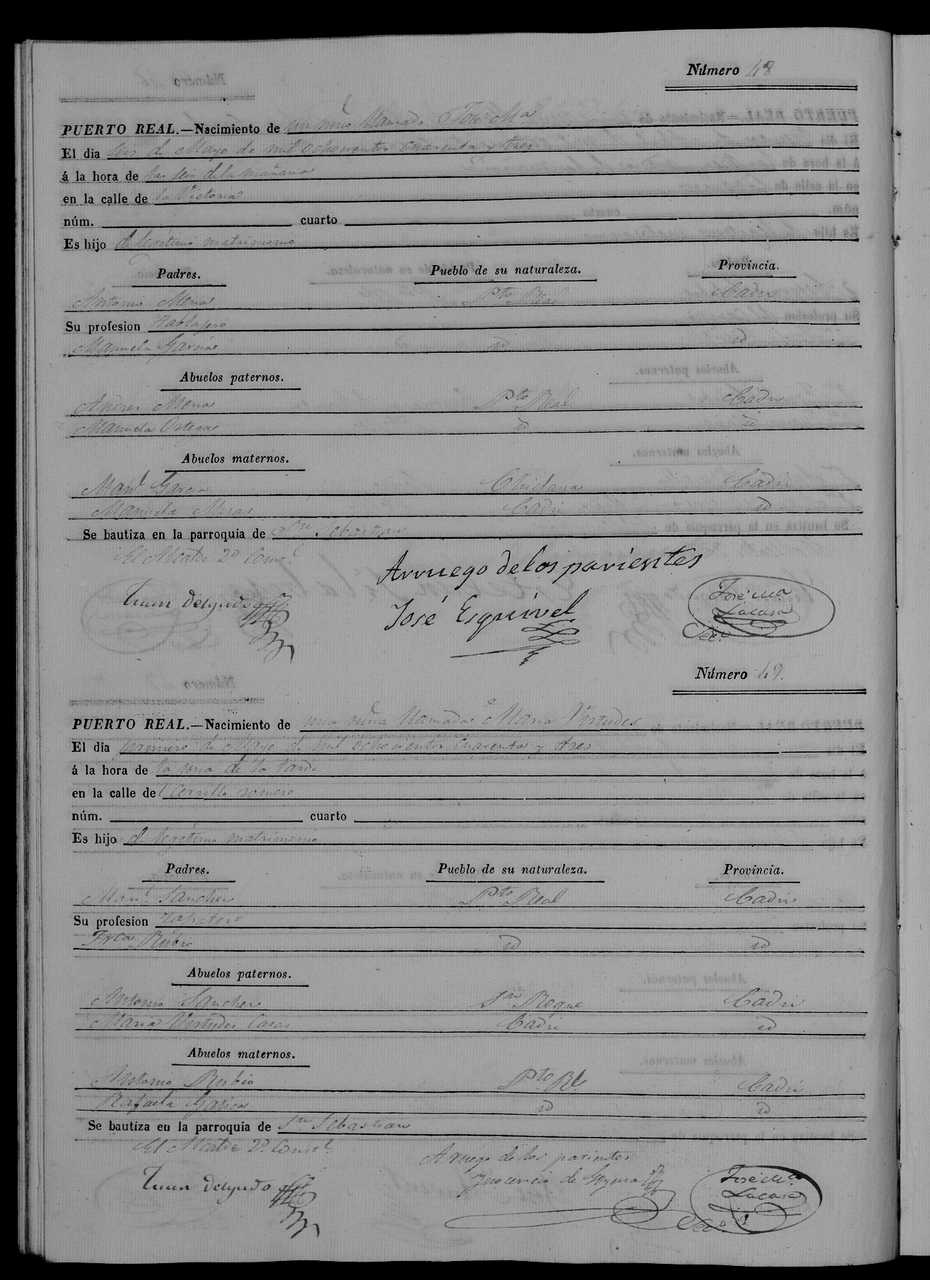 Número 48
PUERTO REAL.—Nacimiento de un niño llamado José Ma
El dia seis de Mayo de mil ochocientos cuarenta y tres
á la hora de las seis de la mañana
en la calle de la Victoria
núm. cuarto
Es hijo de legitimo matrimonio
Padres. Pueblo de su naturaleza. Provincia.
Antonio Mena Pto Real Cadiz
Su profesion Tablajero
Manuela Garcia id id
Abuelos paternos.
Andres Mena Pto Real Cadiz
Manuela Ortega id id
Abuelos maternos.
Manl Garcia Chiclana Cadiz
Manuela Cadiz id
Se bautiza en la parroquia de Sn Sebastian
El Alcalde 2º Consl
Arruego de los parientes
Juan Delgado
José Esquivel
José Ma
Lacasa
Srio
Número 49.
PUERTO REAL.—Nacimiento de una niña llamada Maria Virtudes
El dia primero de Mayo de mil ochocientos cuarenta y tres
á la hora de la una de la tarde
en la calle del Cerrillo romero
núm. cuarto
Es hijo de legitimo matrimonio
Padres. Pueblo de su naturaleza. Provincia.
Manl Sanchez Pto Real Cadiz
Su profesion Zapatero
Frca Rubio id id
Abuelos paternos.
Antonio Sanchez Sn Roque Cadiz
Maria Virtudes Cadiz id
Abuelos maternos.
Antonio Rubio Pto Rl Cadiz
Rafaela Garcia id id
Se bautiza en la parroquia de Sn Sebastian
El Alcalde 2º Consl
Arruego de los parientes
Juan Delgado
Inocencio de
José Ma
Lacasa
Srio